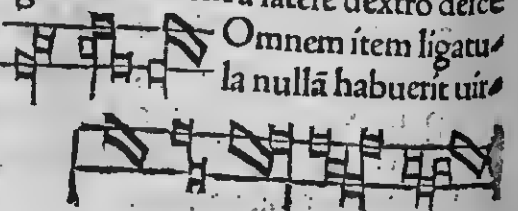 latere dextro desce
Omnem item ligatu
la nullã habuerit uir